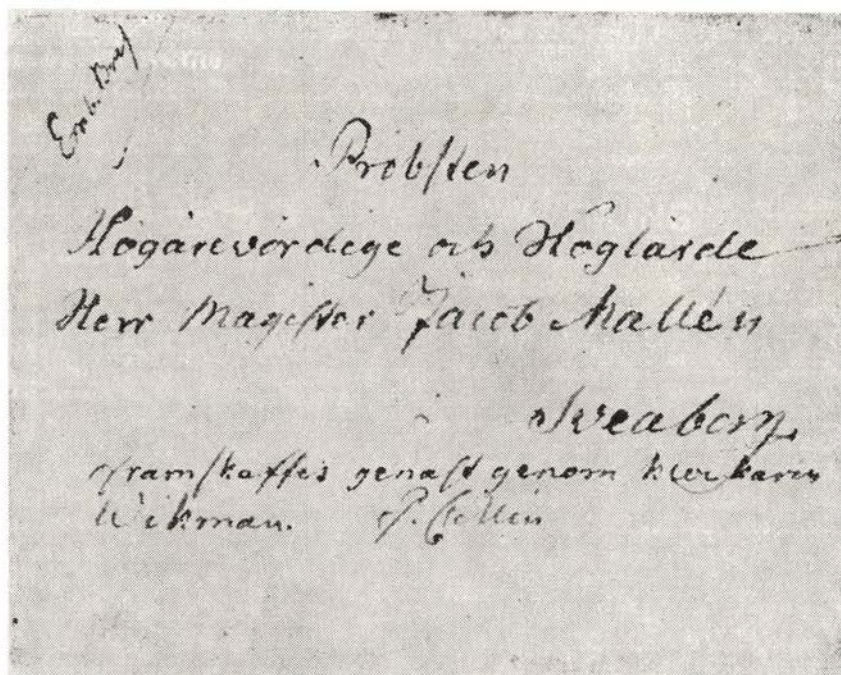 Emb. Bref
Probsten
Högärevördige och Höglärde
Herr Magister Jacob Mallén
Sveaborg
framskaffes genast genom
Wikman. P. Collin